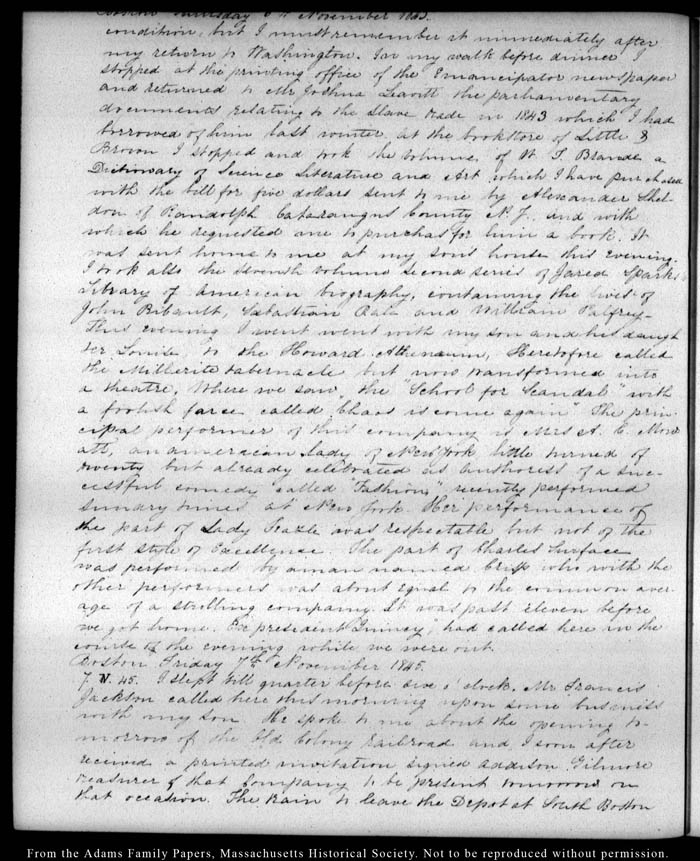 Thursday 6th November 1845.
condition, but I must remember it immediately after
my return to Washington. In my walk before dinner I
stopped at the printing office of the Emancipator newspaper
and returned to Mr Joshua Leavitt the parliamentary
documents relating to the slave trade in 1843 which I had
borrowed of him last winter, at the bookstore of Little &
Brown I stopped and took the volume of W. T. Brande a
Dictionary of Science Literature and Art which I have purchased
with the bill for five dollars sent to me by Alexander Shel-
don of Randolph Cataraugus County N. Y. and with
which he requested me to purchas for him a book. It
was sent home to me at my son's house this evening.
I took also the seventh volume second series of Jared Sparks
Library of American biography, containing the lives of
John Ribault, Sebastian Rale and William Palfrey—
This evening I went went with my son and his daugh
ter Louisa, to the Howard Athenaeum, Heretofore called
the Millerite tabernacle but now transformed into
a theatre, Where we saw the "School for Scandal" with
a foolish farce called "Chaos is come again" The prin-
cipal performer of this company is Mrs A. C. Mow
att, an american Lady of New York little turned of
twenty but already celebrated as authoress of a suc-
cessful comedy called "Fashion," recently performed
sundry times at New York. Her performance of
the part of Lady Teazle was respectable but not of the
first style of Excellence. The part of Charles Surface
was performed by a man named Crisp who with the
other performers was about equal to the common aver-
age of a strolling company. It was past eleven before
we got home. Ex president Quincy, had called here in the
course of the evening while we were out.
Boston Friday 7th November 1845.
7. N. 45. I slept till quarter before five o'clock. Mr Francis
Jackson called here this morning upon some business
with my son. He spoke to me about the opening to-
morrow of the Old Colony railroad and I soon after
received a printed invitation signed Addison Gilmore
treasurer of that Company to be present tomorrow on
that occasion. The train to leave the Depot at South Boston
From the Adams Family Papers, Massachusetts Historical Society. Not to be reproduced without permission.